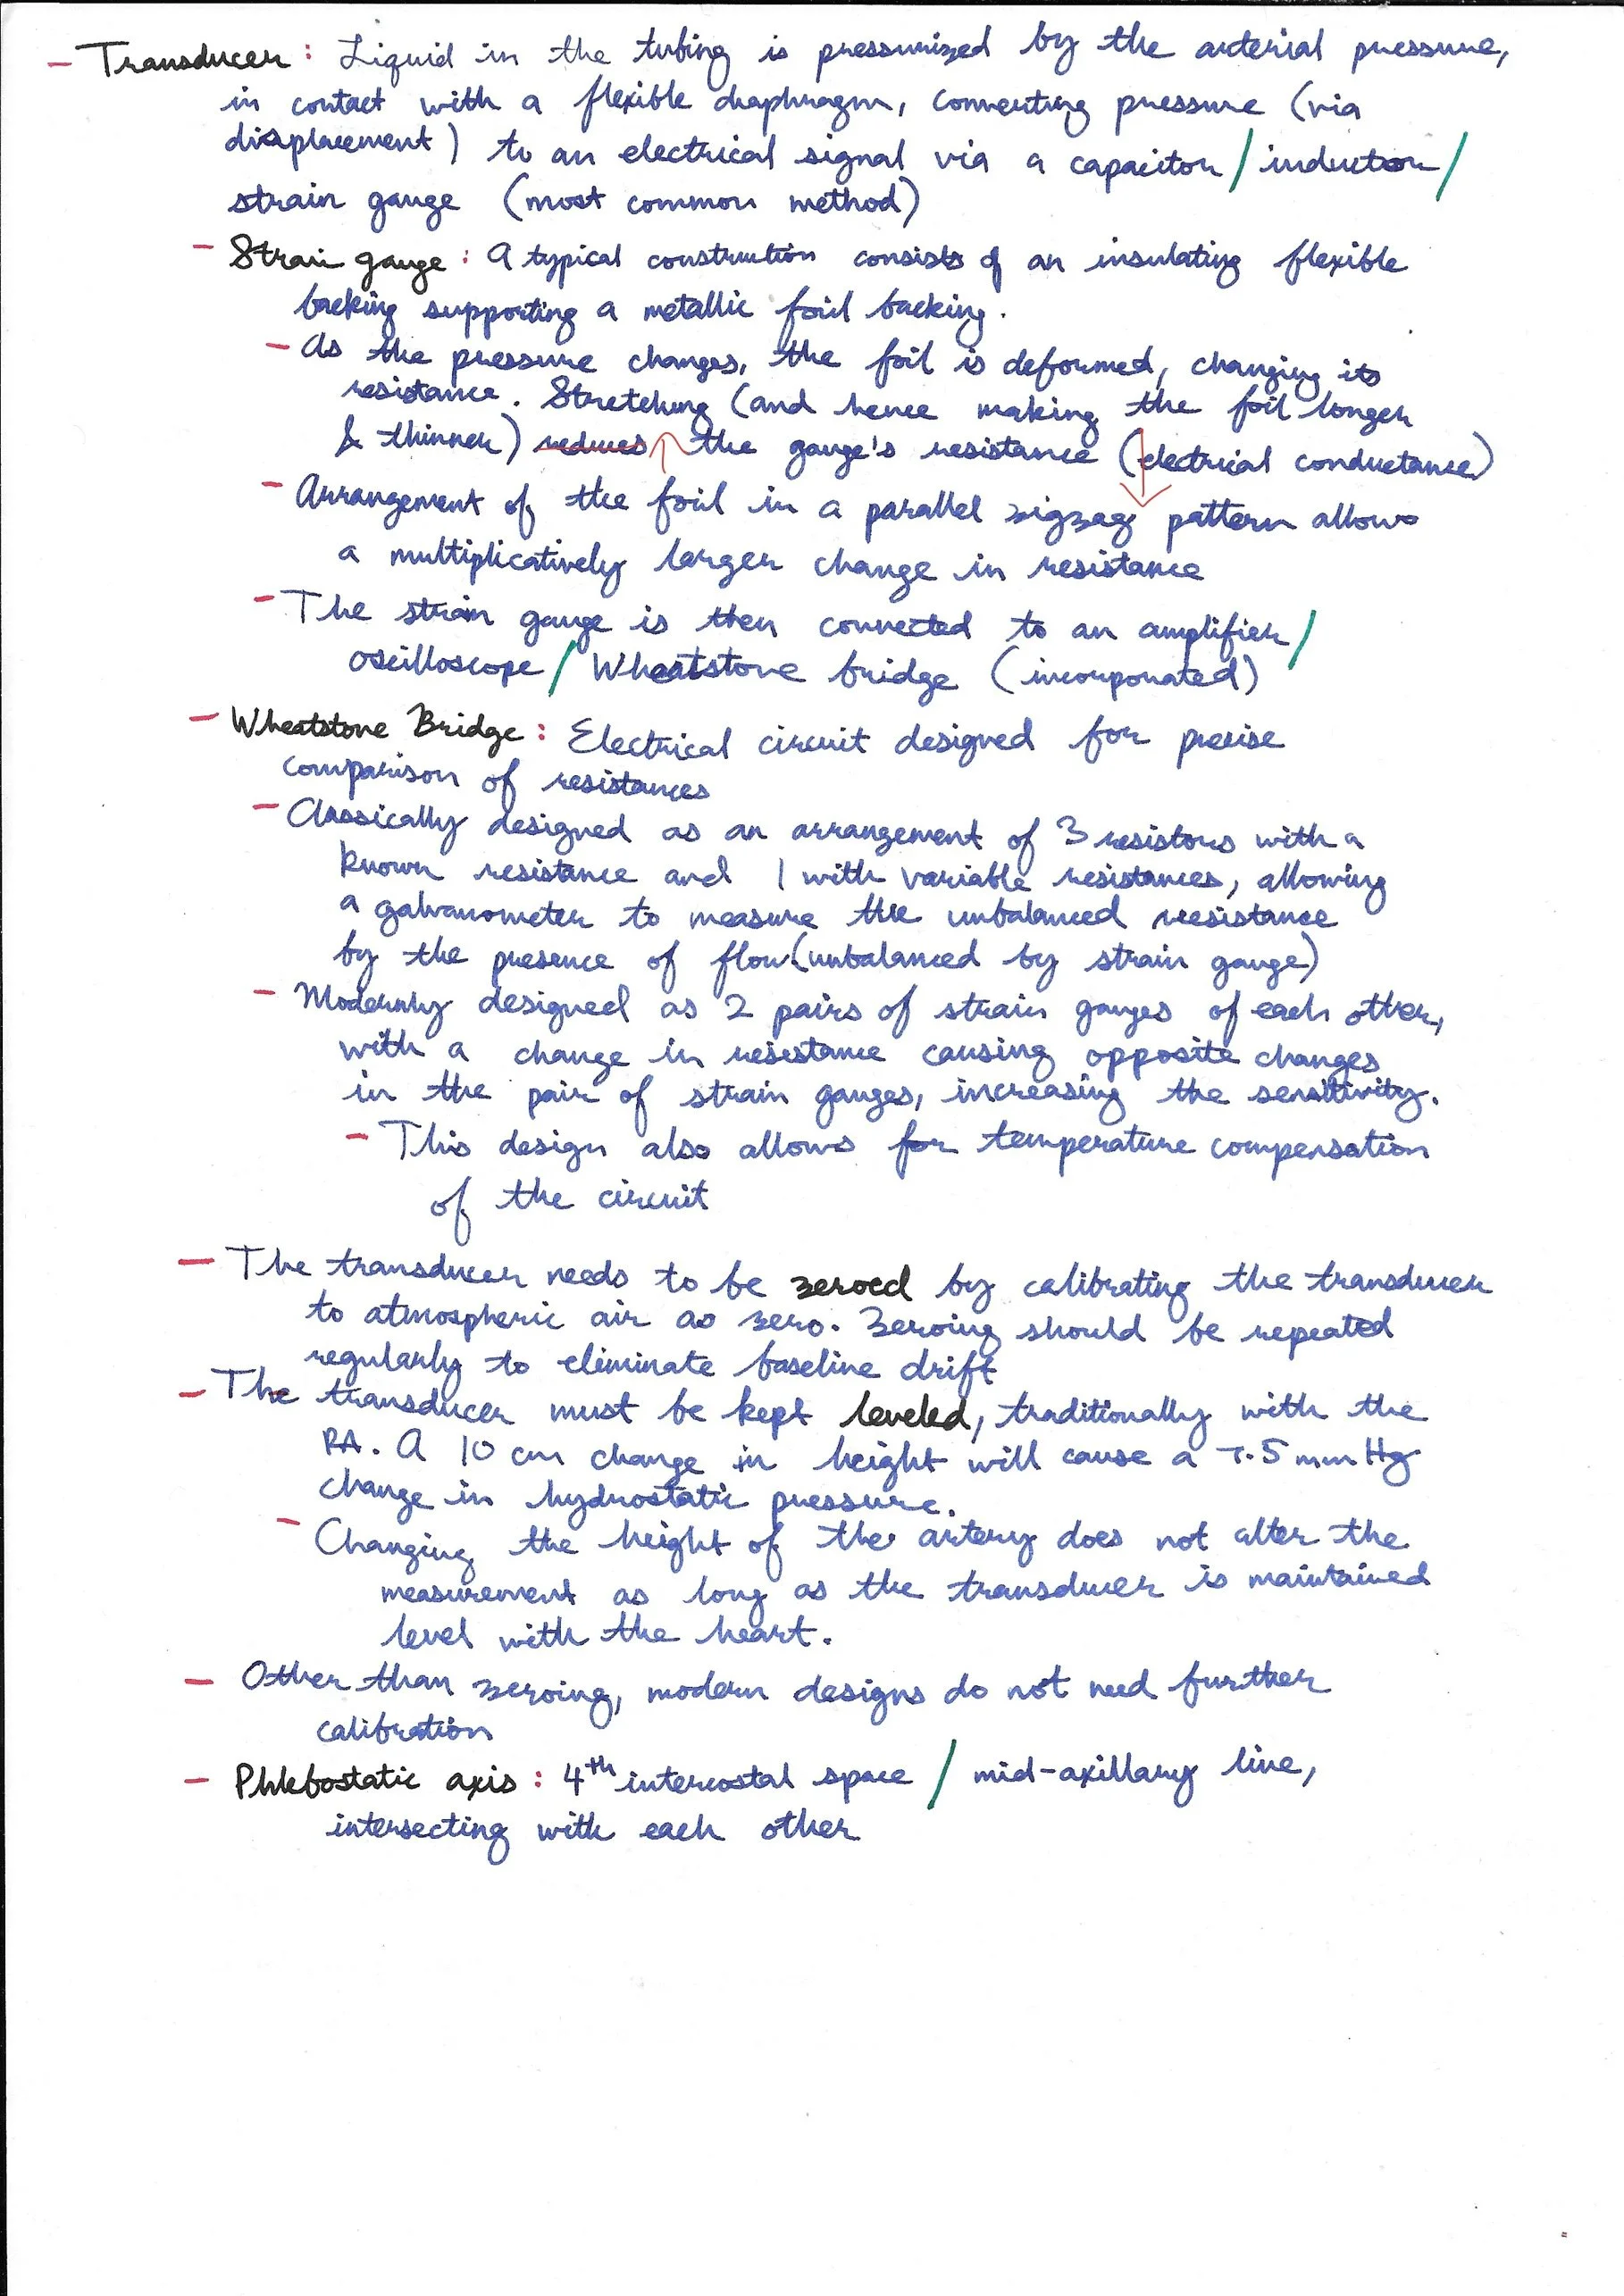 - Transducer: Liquid in the tubing is pressurized by the arterial pressure,
in contact with a flexible diaphragm, converting pressure (via
displacement) to an electrical signal via a capacitor / inductor /
strain gauge (most common method)
- Strain gauge: A typical construction consists of an insulating flexible
backing supporting a metallic foil backing.
- As the pressure changes, the foil is deformed, changing its
resistance. Stretching (and hence making the foil longer
& thinner) reduces ↑ the gauge's resistance (↓ electrical conductance)
- Arrangement of the foil in a parallel zigzag pattern allows
a multiplicatively larger change in resistance
- The strain gauge is then connected to an amplifier /
oscilloscope / Wheatstone bridge (incorporated)
- Wheatstone Bridge: Electrical circuit designed for precise
comparison of resistances
- Classically designed as an arrangement of 3 resistors with a
known resistance and 1 with variable resistances, allowing
a galvanometer to measure the unbalanced resistance
by the presence of flow (unbalanced by strain gauge)
- Modernly designed as 2 pairs of strain gauges of each other,
with a change in resistance causing opposite changes
in the pair of strain gauges, increasing the sensitivity.
- This design also allows for temperature compensation
of the circuit
- The transducer needs to be zeroed by calibrating the transducer
to atmospheric air as zero. Zeroing should be repeated
regularly to eliminate baseline drift
- The transducer must be kept leveled, traditionally with the
RA. A 10 cm change in height will cause a 7.5 mm Hg
change in hydrostatic pressure.
- Changing the height of the artery does not alter the
measurement as long as the transducer is maintained
level with the heart.
- Other than zeroing, modern designs do not need further
calibration
- Phlebostatic axis: 4th intercostal space / mid-axillary line,
intersecting with each other